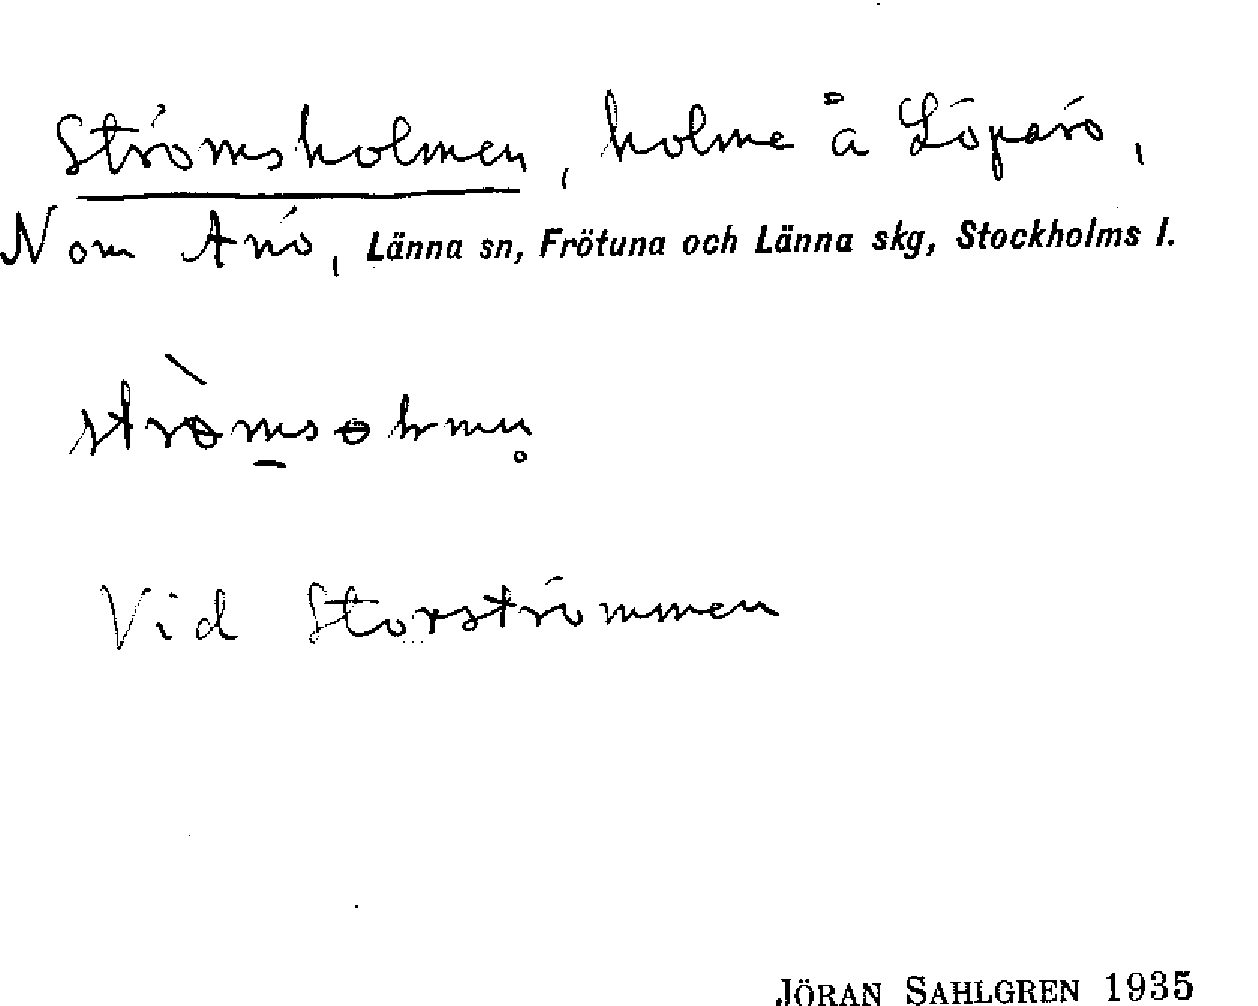 Strömsholmen, holme å Löparö,
N om Anö, Länna sn, Frötuna och Länna skg, Stockholms l.
Vid Storströmmen
JÖRAN SAHLGREN 1935